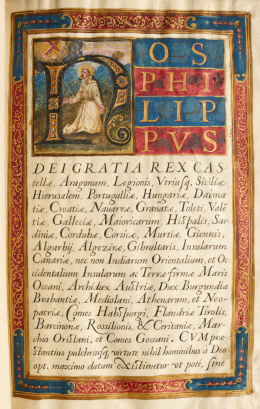 NOS
PHI
LIP
PVS
DEI GRATIA REX CAS
tellæ, Aragonum, Legionis, Vtriusq̃, Siciliæ,
Hierusalem, Portugalliæ, Hungariæ, Dalma
tiæ, Croatiæ, Nauarræ, Granatæ, Toleti, Valẽ
tiæ, Galleciæ, Maioricarum, Hispalis, Sar
diniæ, Cordubæ, Corsicæ, Murtiæ, Giennis,
Algarbij, Algeziræ, Gibraltaris, Insularum
Canariæ, nec non Indiarum Orientalium, et Oc
cidentalium Insularum ac Terræ firmæ Maris
Oceani, Archidux Austriæ, Dux Burgundiæ
Brabantiæ, Mediolani, Athenarum, et Neo-
patriæ, Comes Habspurgi, Flandriæ, Tirolis,
Barcinonæ, Rossilionis, & Ceritaniæ, Mar-
chio Oristani, et Comes Goceani. CVM præ
stantius pulchriusq̃, virtute nihil hominibus à Deo
opt. maximo datum existimetur vt potè, sine